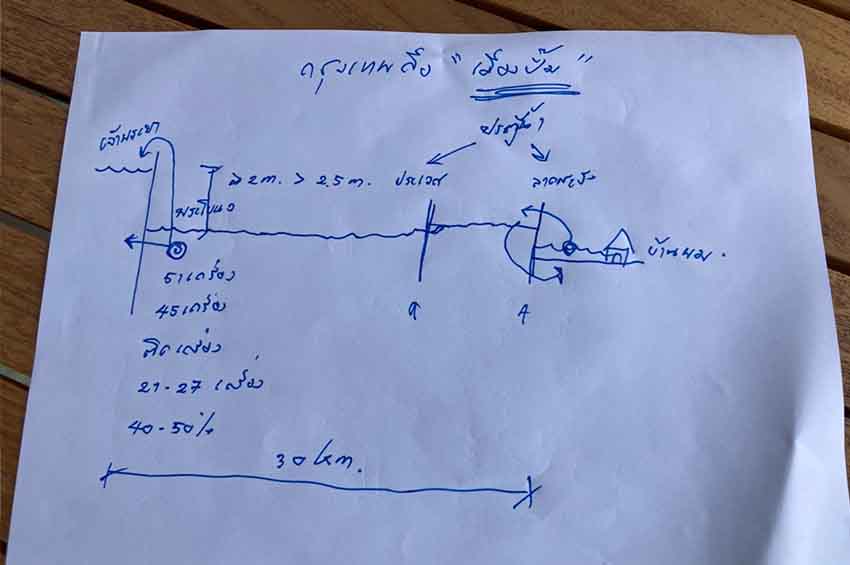 กรุงเทพคือ "เมืองปั๊ม"
ประตูน้ำ
เจ้าพระยา
≥ 2 m. > 2.5 m.
ประเวศ
ลาดกระบัง
พระโขนง
บ้านผม.
51 เครื่อง
45 เครื่อง
ติดเครื่อง
21-27 เครื่อง
40-50%
30 km.